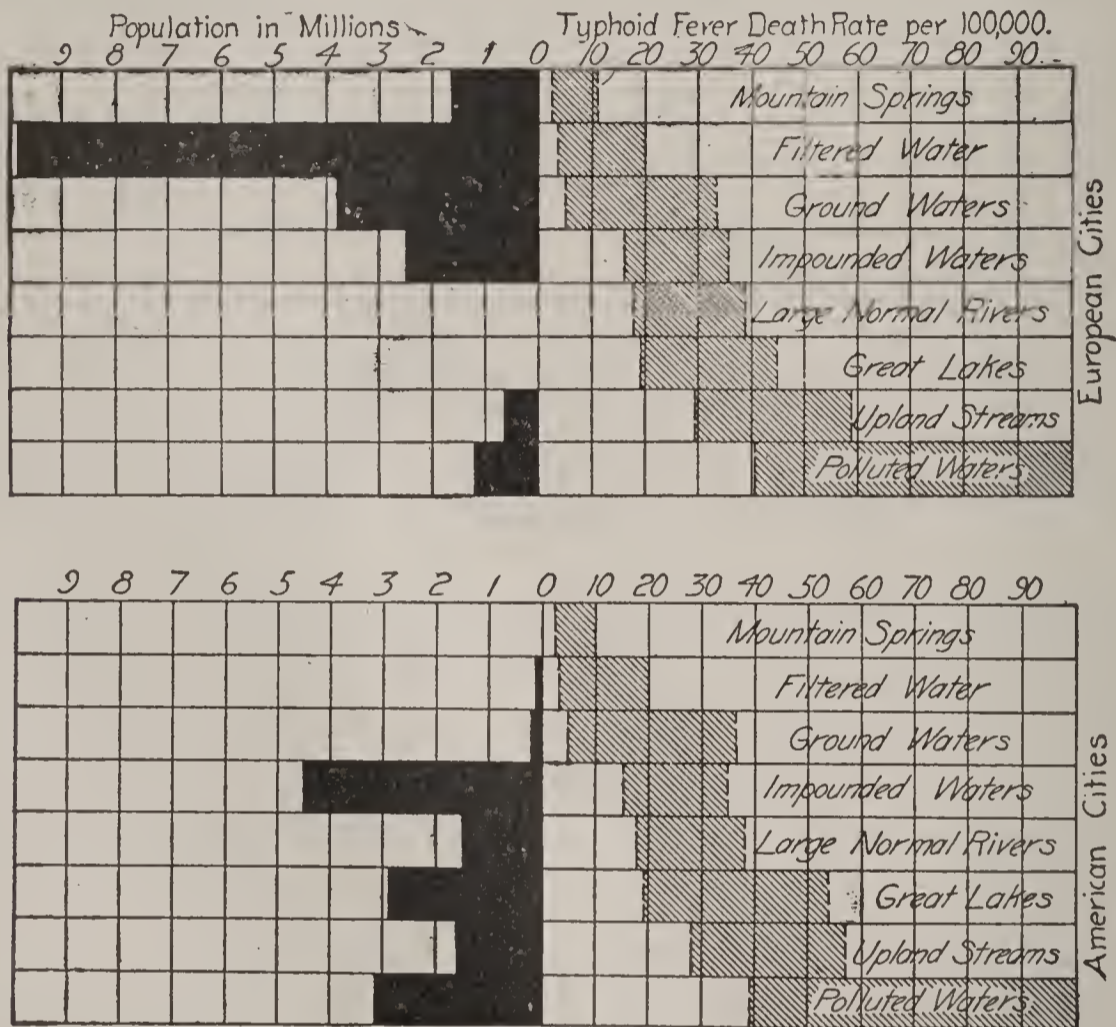 Population in Millions Typhoid Fever Death Rate per 100,000.
9 8 7 6 5 4 3 2 1 0 10 20 30 40 50 60 70 80 90
Mountain Springs
Filtered Water
Ground Waters
Impounded Waters
Large Normal Rivers
Great Lakes
Upland Streams
Polluted Waters
European Cities
9 8 7 6 5 4 3 2 1 0 10 20 30 40 50 60 70 80 90
Mountain Springs
Filtered Water
Ground Waters
Impounded Waters
Large Normal Rivers
Great Lakes
Upland Streams
Polluted Waters
American Cities